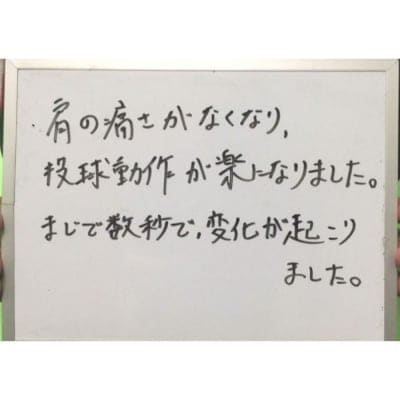 肩の痛さがなくなり,
投球動作が楽になりました。
まじで数秒で,変化が起こり
ました。